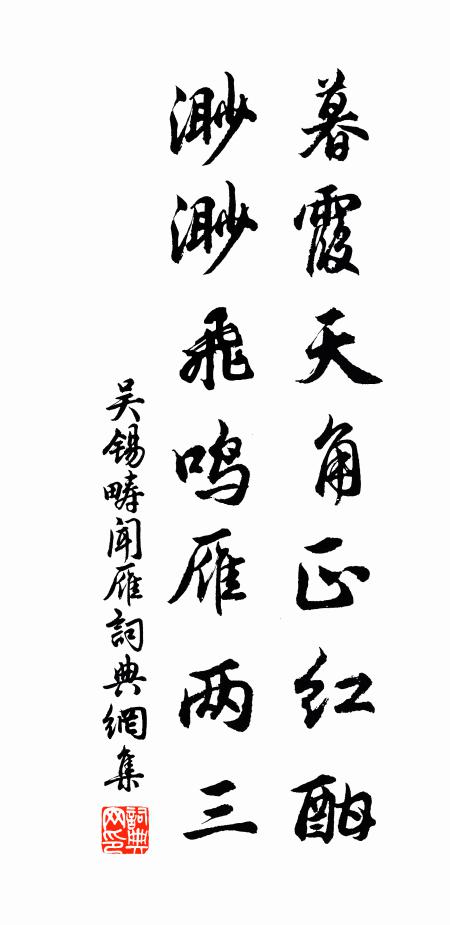 暮霞天角正红酣
渺渺飞鸣雁两三
吴锡畴闻雁詞典網集
詞典网印